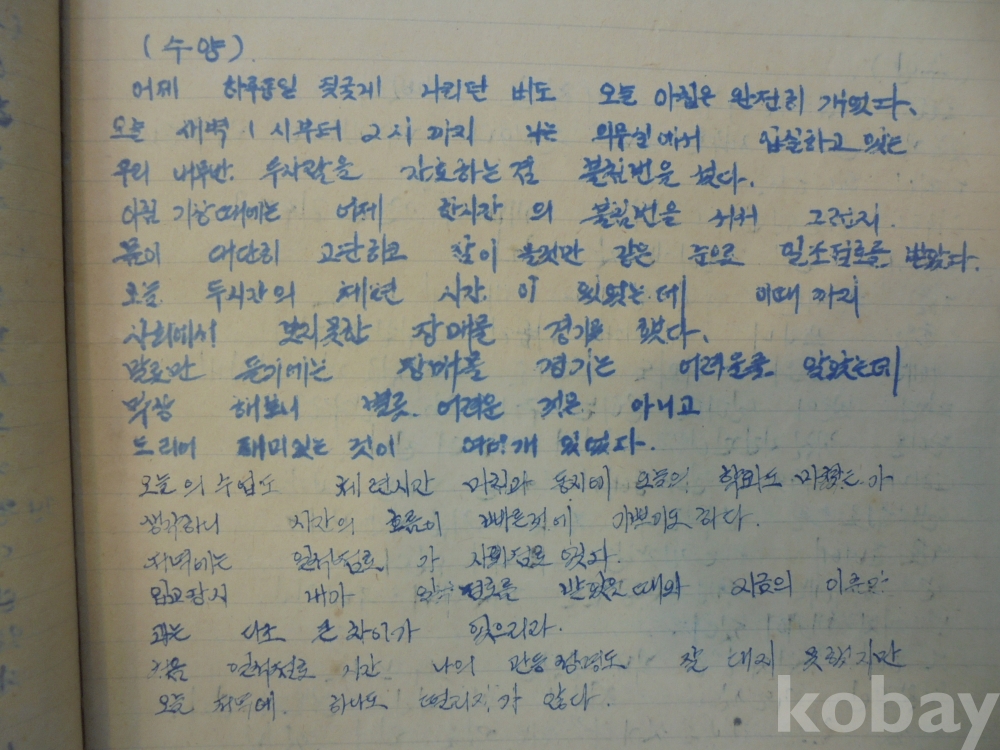 (수양).
어제 하루종일 궂궂게 나리던 비도 오늘 아침은 완전히 개였다.
오늘 새벽 1시부터 2시까지 나는 의무실에서 입실하고 있는
우리 내무반. 두사람을 간호하는 겸 불침번을 섰다.
아침 기상때에는 어제 한시간의 불침번을 서서 그런지.
몸이 대단히 고단하고 같은 눈으로 일조점호를 받았다.
오늘 두시간의 체련 시간.이 있었는데 이때까지
사회에서 보지못한 장매물 경기를 했다.
말로만 듣기에는 장매물 경기는 어려운줄 알았는데
막상 해보니 별로. 어려운 것은 아니고
도리어 재미있는 것이 여러개 있었다.
오늘의 수업도 체련시간 마침과 동시에 오늘의 학과도 마쳤는가
생각하니 시간의 흐름이 빠른것에 기쁘기도 하다.
저녁에는 일석점호.가
입교당시 내가 일석점호를 받았을때와 지금의
과는 다소 큰 차이가 있으리라.
처음 일석점호 시간 나의 관등성명도. 잘 대지 못했지만
오늘 저녁에. 하나도 떨리지.가 않다.
kobay